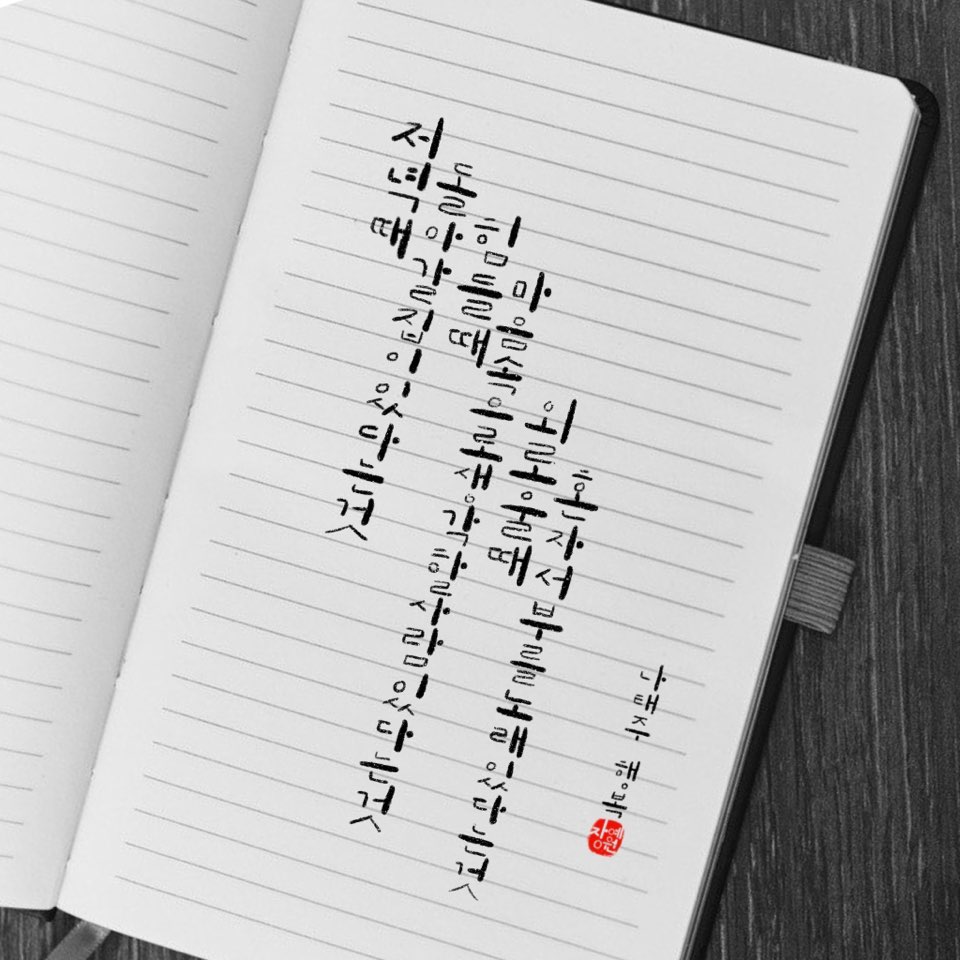 저녁때
돌아갈 집이 있다는 것
힘들 때
마음속으로 생각할 사람 있다는 것
외로울 때
혼자서 부를 노래 있다는 것
나태주 행복
장예원